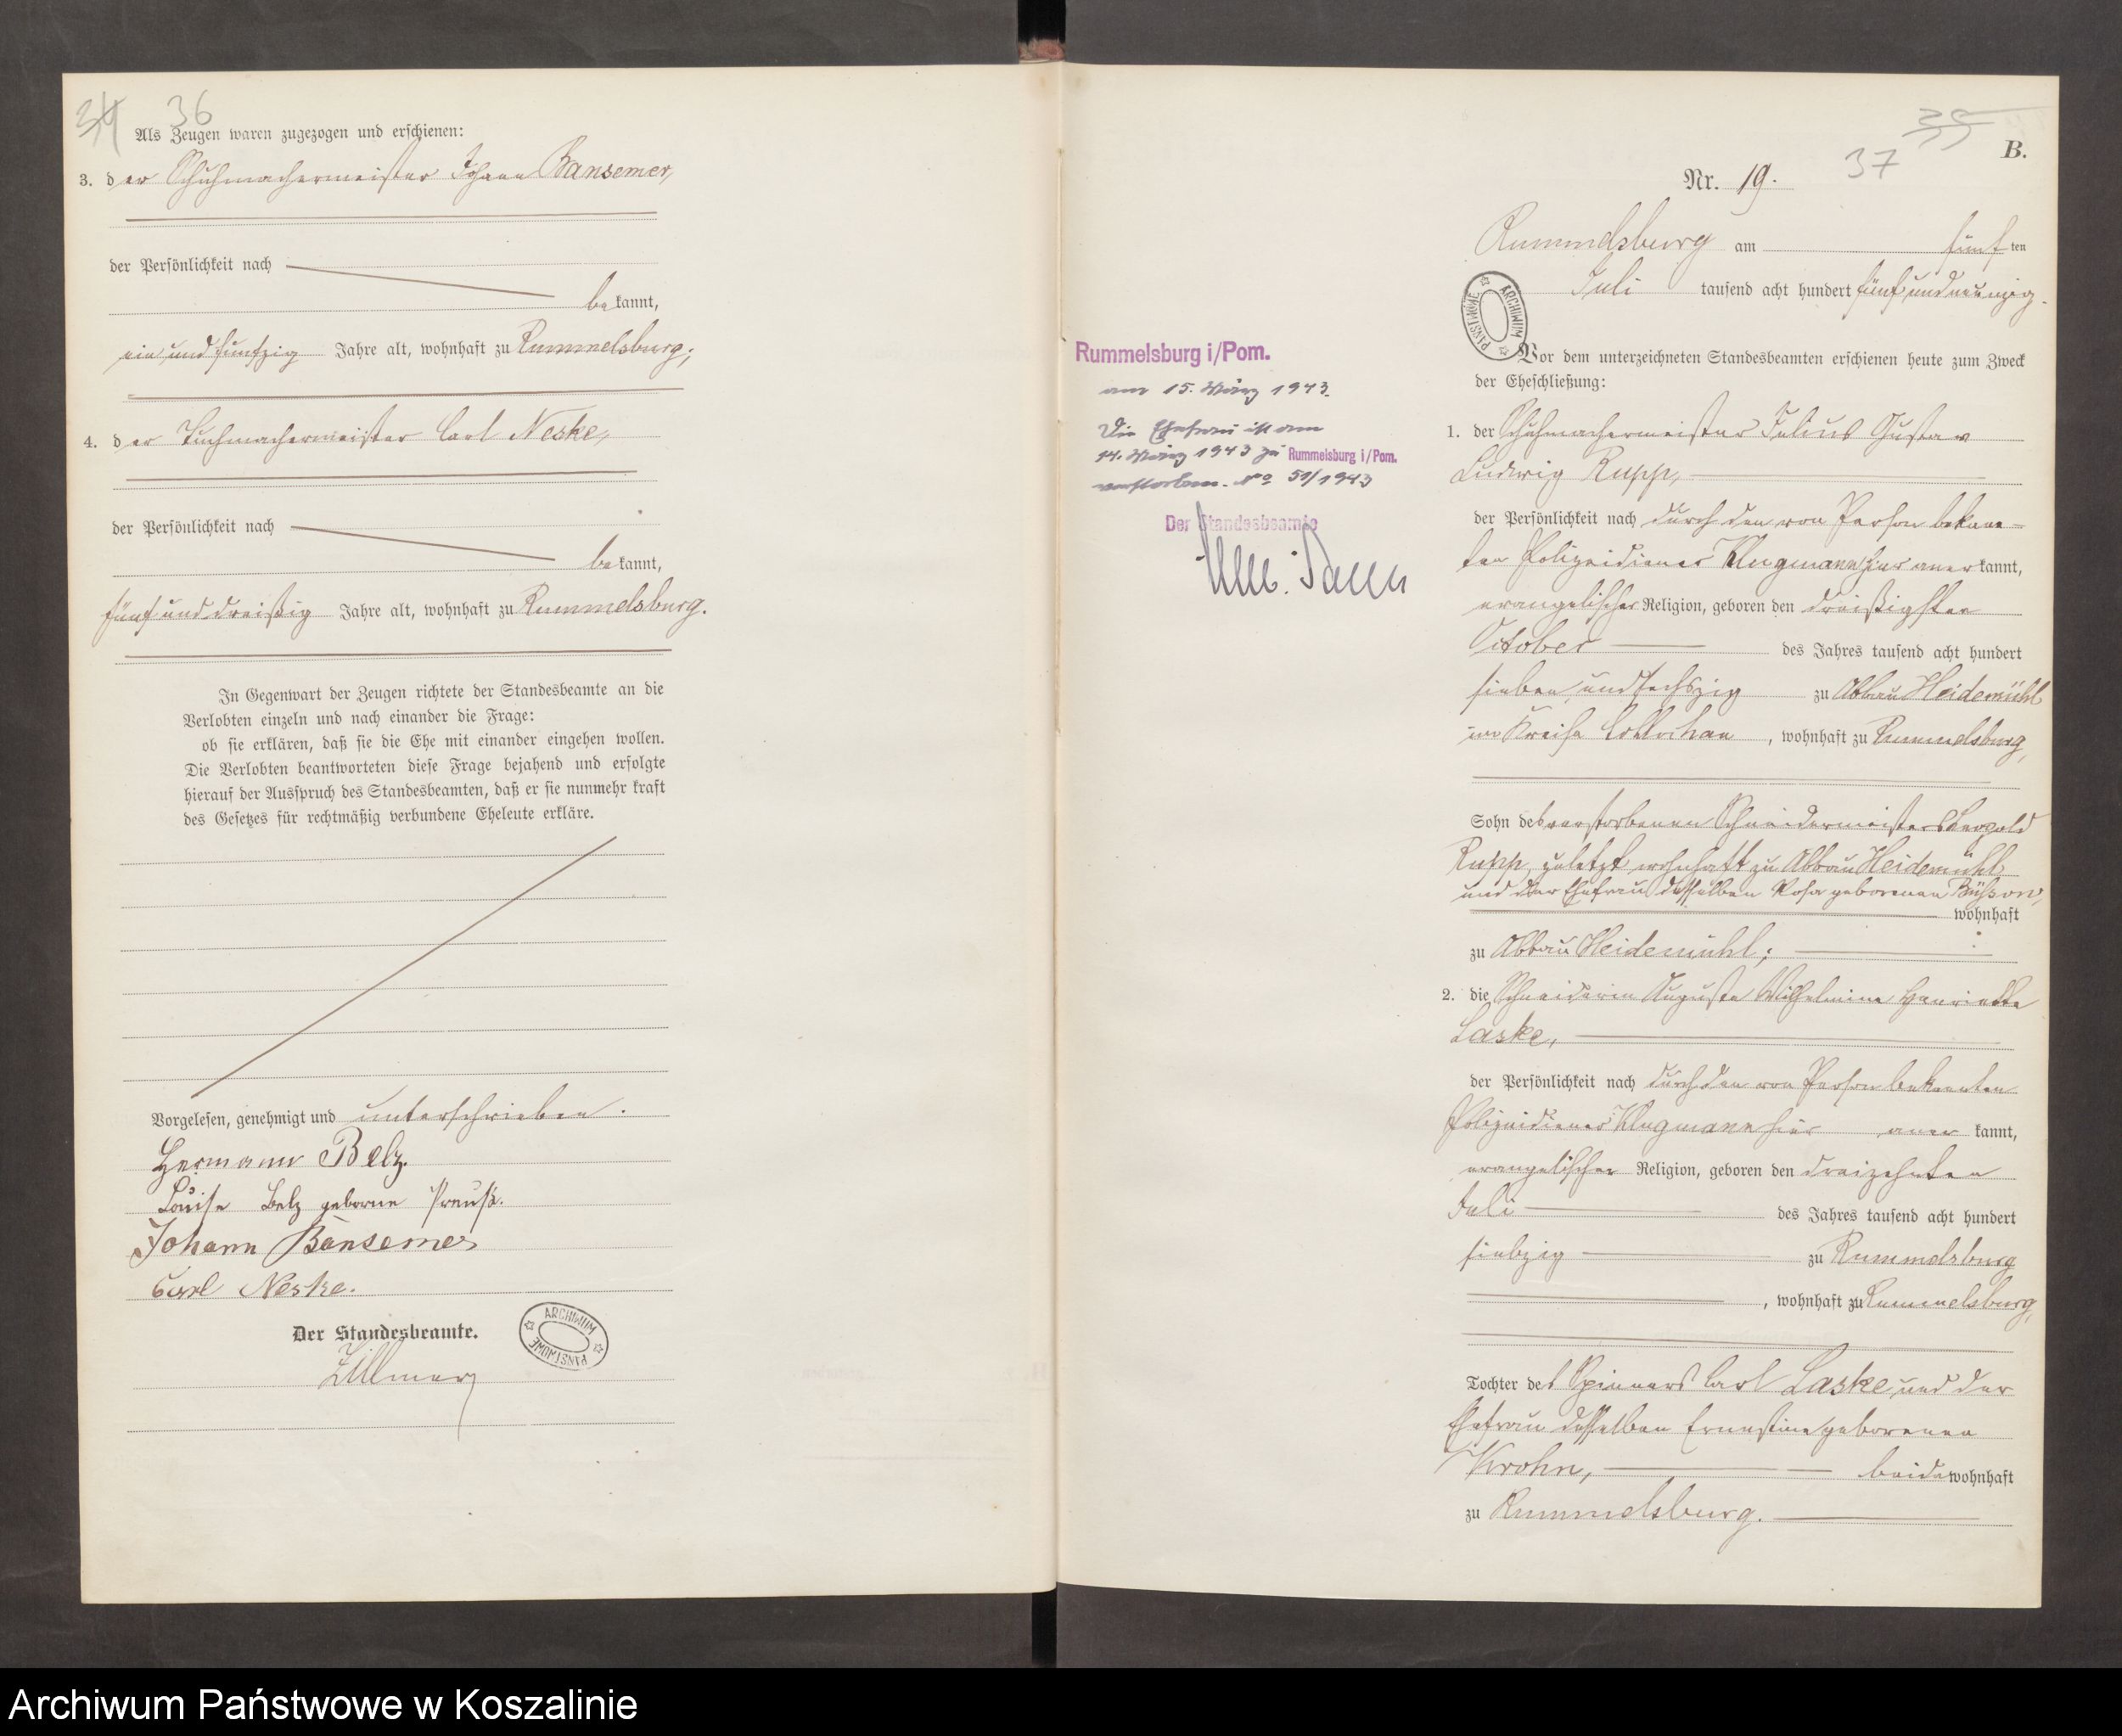 34 36
Als Zeugen waren zugezogen und erschienen:
3. der Schuhmachermeister Johann Bansemer,
der Persönlichkeit nach
bekannt,
ein und fünfzig Jahre alt, wohnhaft zu Rummelsburg;
4. der Tuchmachermeister Carl Neske,
der Persönlichkeit nach
bekannt,
fünf und dreißig Jahre alt, wohnhaft zu Rummelsburg.
In Gegenwart der Zeugen richtete der Standesbeamte an die
Verlobten einzeln und nach einander die Frage:
ob sie erklären, daß sie die Ehe mit einander eingehen wollen.
Die Verlobten beantworteten diese Frage bejahend und erfolgte
hierauf der Ausspruch des Standesbeamten, daß er sie nunmehr kraft
des Gesetzes für rechtmäßig verbundene Eheleute erkläre.
Vorgelesen, genehmigt und unterschrieben.
Hermann Belz.
Louise Belz geborne Preuß.
Johann Bansemer
Carl Neske.
Der Standesbeamte.
Zillmer
ARCHIWUM PAŃSTWOWE
35
37
B.
Nr. 19.
Rummelsburg am fünften
Juli tausend acht hundert fünf und neunzig.
ARCHIWUM PAŃSTWOWE
Vor dem unterzeichneten Standesbeamten erschienen heute zum Zweck
der Eheschließung:
1. der Schuhmachermeister Julius Gustav
Ludwig Rupp,
der Persönlichkeit nach durch den von Person bekann-
ten Polizeidiener Klugmann hier anerkannt,
evangelischer Religion, geboren den dreißigsten
October des Jahres tausend acht hundert
sieben und sechszig zu Abbau Heidemühl
im Kreise , wohnhaft zu Rummelsburg,
Sohn des verstorbenen Schneidermeisters Leopold
Rupp, zuletzt wohnhaft zu Abbau Heidemühl
und der Ehefrau desselben Rosa geborenen
wohnhaft
zu Abbau Heidemühl;
2. die Schneiderin Auguste Wilhelmine Henriette
Laske,
der Persönlichkeit nach durch den von Person bekannten
Polizeidiener Klugmann hier anerkannt,
evangelischer Religion, geboren den dreizehnten
Juli des Jahres tausend acht hundert
siebzig zu Rummelsburg
, wohnhaft zu Rummelsburg,
Tochter des Spinners Carl Laske und der
Ehefrau desselben Ernestine geborenen
Krohn, beide wohnhaft
zu Rummelsburg.
Rummelsburg i/Pom.
am 15. März 1943.
Die Ehefrau ist am
14. März 1943 zu Rummelsburg i/Pom.
verstorben. No 51/1943
Der Standesbeamte
Archiwum Państwowe w Koszalinie